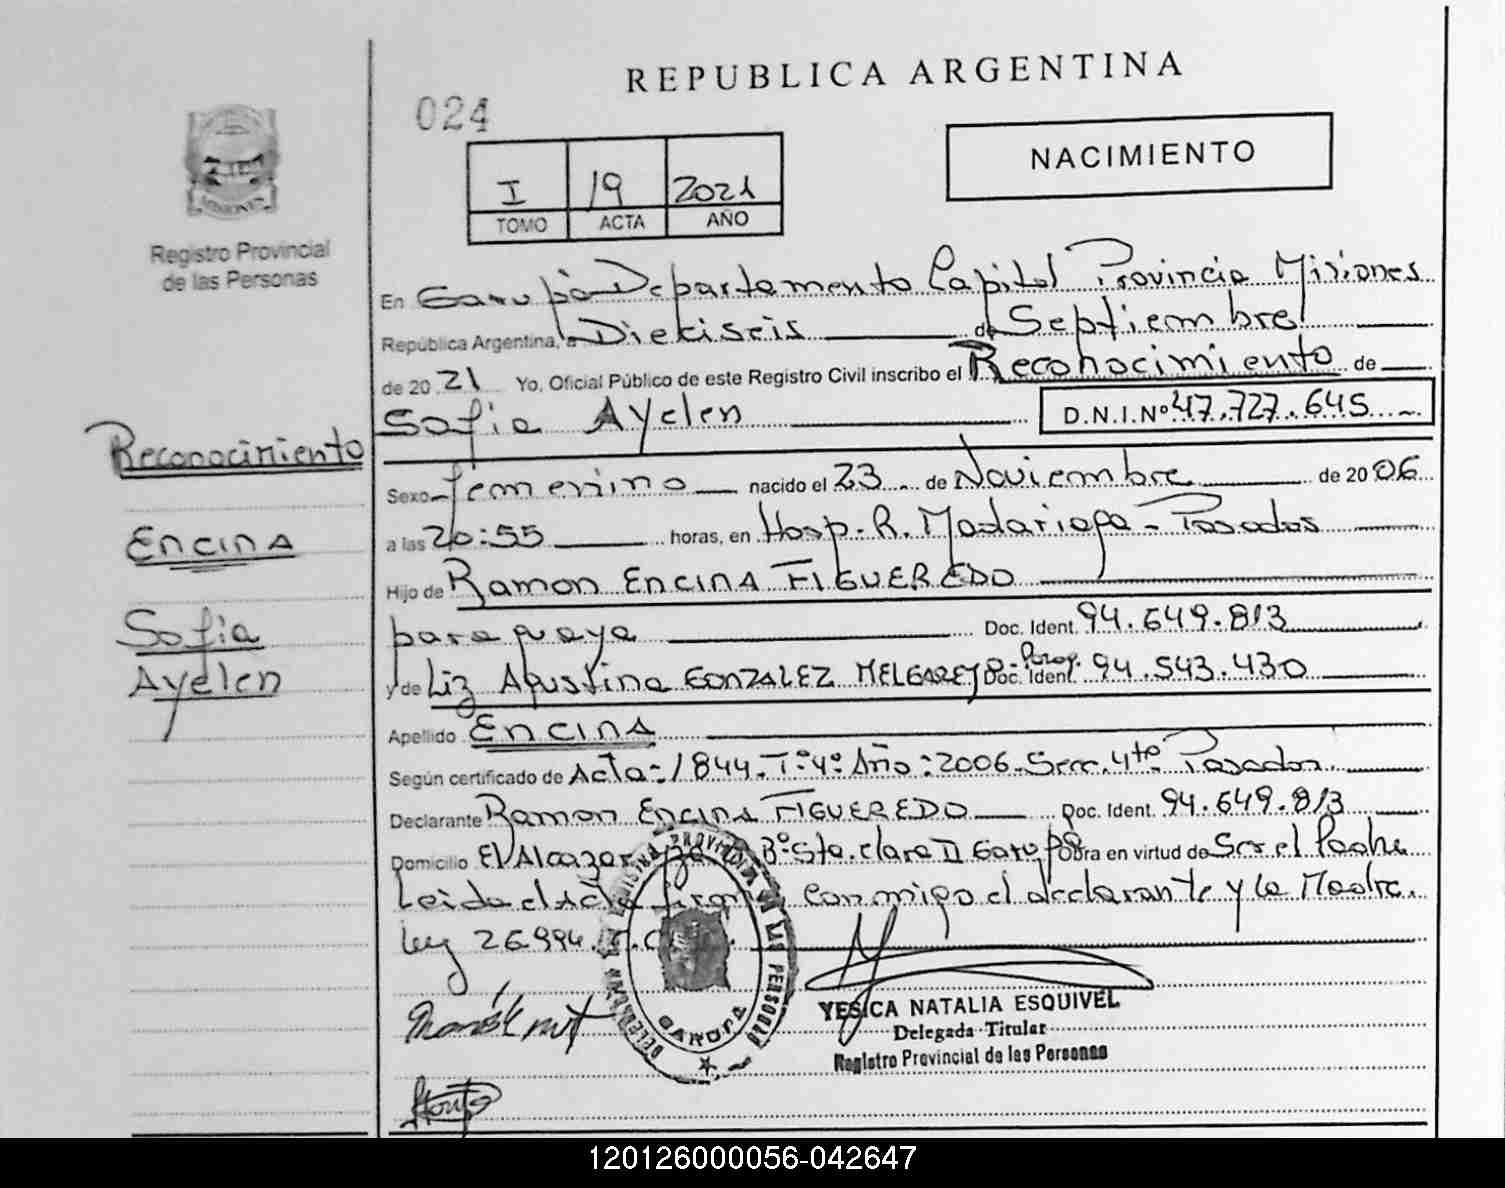 REPUBLICA ARGENTINA
024
NACIMIENTO
I 19 2021
TOMO ACTA AÑO
Registro Provincial
de las Personas
En Garupá Departamento Capital Provincia Misiones
República Argentina, a Dieciseis de Septiembre
de 20 21 Yo, Oficial Público de este Registro Civil inscribo el Reconocimiento de
Sofia Ayelen D.N.I. Nº 47.727.645
Reconocimiento
Sexo femenino nacido el 23 de Noviembre de 20 06
Encina
a las 20:55 horas, en Hosp. R. Madariaga - Posadas
Hijo de Ramon ENCINA FIGUEREDO
Sofia
paraguaya Doc. Ident. 94.649.813
Ayelen
y de Liz Agustina GONZALEZ MELGAREJO - Parag. Doc. Ident. 94.543.430
Apellido Encina
Según certificado de Acta: 1844. Tº 4º Año: 2006. Secc. 4ta Posadas
Declarante Ramon Encina FIGUEREDO Doc. Ident. 94.649.813
Domicilio El Alcazar Bº Sta. Clara II Garupá Obra en virtud de Ser el Padre
Leida el Acta firman conmigo el declarante y la Madre.
Ley 26.994.
YESICA NATALIA ESQUIVEL
Delegada Titular
Registro Provincial de las Personas
GARUPA
120126000056-042647